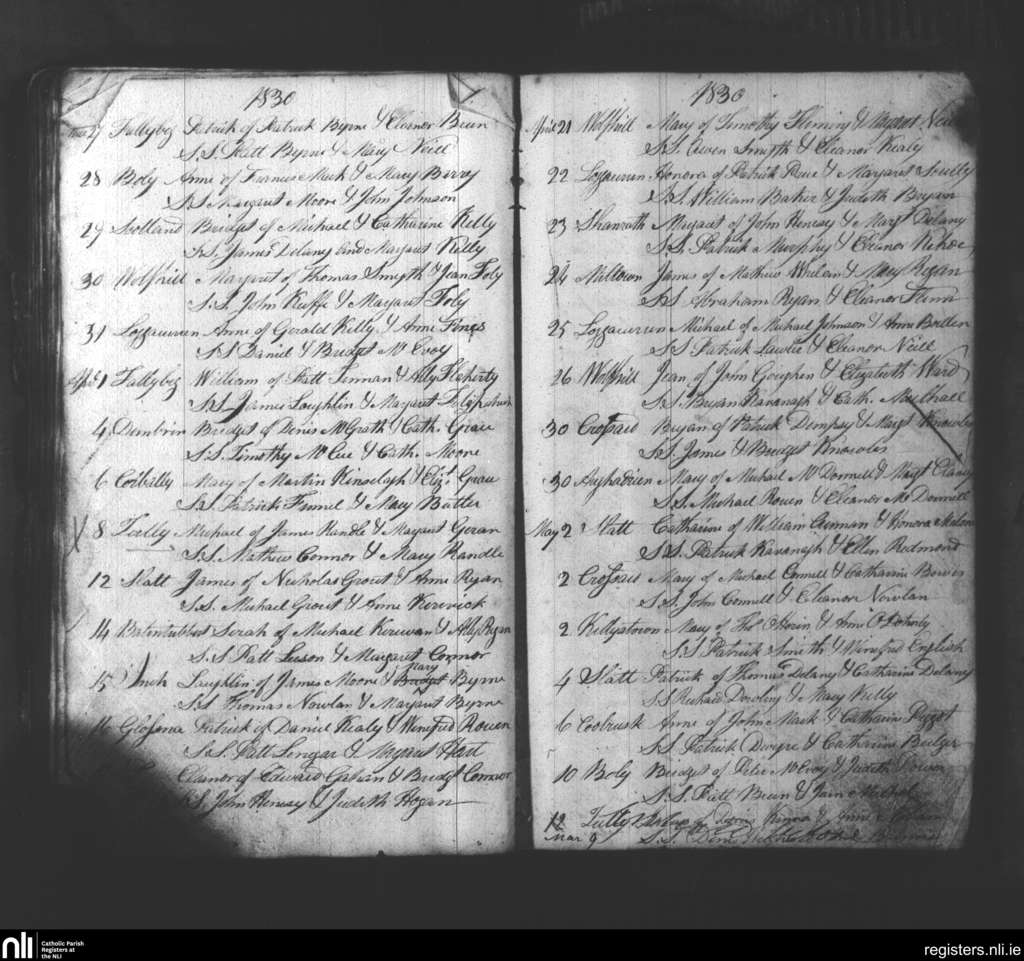 1830
Mar 27 Tallybeg Patrick of Patrick Byrne & Eleanor Brien
S.S. Patt Byrne & Mary Neill
28 Boly Anne of Furneise Meek & Mary Berry
S.S. Margaret Moore & John Johnson
29 Scotland Bridget of Michael & Catharine Kelly
S.S. James Delaney and Margaret Kelly
30 Wolfhill Margaret of Thomas Smyth & Jean Foly
S.S. John Keeffe & Margaret Foly
31 Loggacurren Anne of Gerald Kelly & Anne Hings
S.S. Daniel & Bridget McEvoy
April 1 Tallybeg William of Patt Finnan & Ally Flaherty
S.S. James Laughlin & Margaret
4 Dunbrin Bridget of Denis McGrath & Cath. Grace
S.S. Timothy McCue & Cath. Moore
6 Corbally Mary of Martin Kinselagh & Eliz. Grace
S.S. Patrick Finnel & Mary Butler
X 8 Tully Michael of James Randle & Margaret Goran
S.S. Mathew Connor & Mary Randle
12 Slatt James of Nicholas Grout & Anne Ryan
S.S. Michael Grout & Anne Kerevick
14 Serah of Michael Kerewan & Ally Ryan
S.S. Patt Leeson & Margaret Connor
15 Inch Laughlin of James Moore & Bridget Mary Byrne
S.S. Thomas Nowlan & Margaret Byrne
16 Patrick of Daniel Kealy & Winifred Rowen
S.S. Patt Lengar & Margaret Hart
Eleanor of Edward & Bridget Connor
S.S. John Henesy & Judith Hogan
1830
April 21 Wolfhill Mary of Timothy Fleming & Margaret Neill
S.S. Owen Smyth & Eleanor Kealy
22 Loggacurren Honora of Patrick Deue & Margaret Scully
S.S. William Baker & Judith Bryan
23 Shanrath Margaret of John Henesy & Margt Delany
S.S. Patrick Murphy & Eleanor Kehoe
24 Milltown James of Mathew Whelan & Mary Regan
S.S. Abraham Ryan & Eleanor Flinn
25 Loggacurren Michael of Michael Johnson & Anne Bollen
S.S. Patrick Lawler & Eleanor Neill
26 Wolfhill Jean of John Goughen & Elizabeth Ward
S.S. Bryan Kavanagh & Cath. Mulhall
30 Crossard Bryan of Patrick Dempsy & Margt Knowles
S.S. James & Bridget Knowles
30 Mary of Michael McDonnell & Margt Clancy
S.S. Michael Rowen & Eleanor McDonnell
May 2 Slatt Catharine of William & Honora Malone
S.S. Patrick Kavanagh & Ellen Redmond
2 Crossard Mary of Michael Connell & Catharine Bowen
S.S. John Connell & Eleanor Nowlan
2 Kellystown Mary of Thos Horin & Anne O'Doherty
S.S. Patrick Smith & Winifred English
4 Slatt Patrick of Thomas Delany & Catharine Delany
S.S. Richard Dowling & Mary Kelly
6 Coolrusk Anne of John Mack & Catharine Piggot
S.S. Patrick Dwyre & Catharine Bolger
10 Boly Bridget of Peter McEvoy & Judith Bowen
S.S. Patt Brien & Jain
12 Tully of Denis
Mar 9 S.S. Denis
nli Catholic Parish
Registers at
the NLI
registers.nli.ie